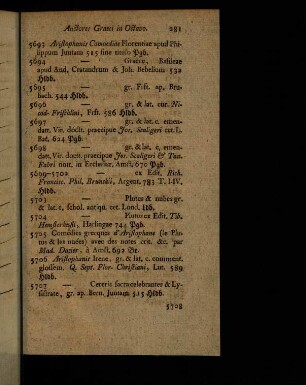 Auctores Graeci in Octavo. 281
5693 Aristophanis Comoediae Florentiae apud Phi-
lippum Juntam 525 sine titulo Pgb.
5694 — Graece, Basileae
apud And. Cratandrum & Joh. Bebelium 532
Hldb.
5695 — gr. Frft. ap. Bru-
bach. 544 Hldb.
5696 — gr. & lat. cur. Ni-
cod. Frischlini, Frft. 586 Hldb.
5697 — gr. & lat. c. emen-
datt. Vir. doctt. praecipue Jos. Scaligeri etc. L.
Bat. 624 Pgb.
5698 — gr. & lat. c. emen-
datt. Vir. doctt. praecipue Jos. Scaligeri & Tan.
Fabri nott. in Eccles. Amst. 670 Pgb.
5699-5702 — ex Edit. Rich.
Francisc. Phil. Brunckii, Argent. 783 T. I-IV,
Hldb.
5703 — Plutus & nubes gr.
& lat. c. schol. antiqu. etc. Lond. Ldb.
5704 — Plutus ex Edit. Tib.
Hemsterhusii, Harlingae 744 Pgb.
5705 Comédies grecques d'Aristophane (le Plu-
tus & les nuées) avec des notes crit. &c. par
Mad. Dacier, à Amst. 692 Br.
5706 Aristophanis Irene, gr. & lat. c. comment.
glossem. Q. Sept. Flor. Christiani, Lut. 589
Hldb.
5707 — Cereris sacra celebrantes & Ly-
sistrate, gr. ap. Bern. Juntam 515 Hldb.
5708